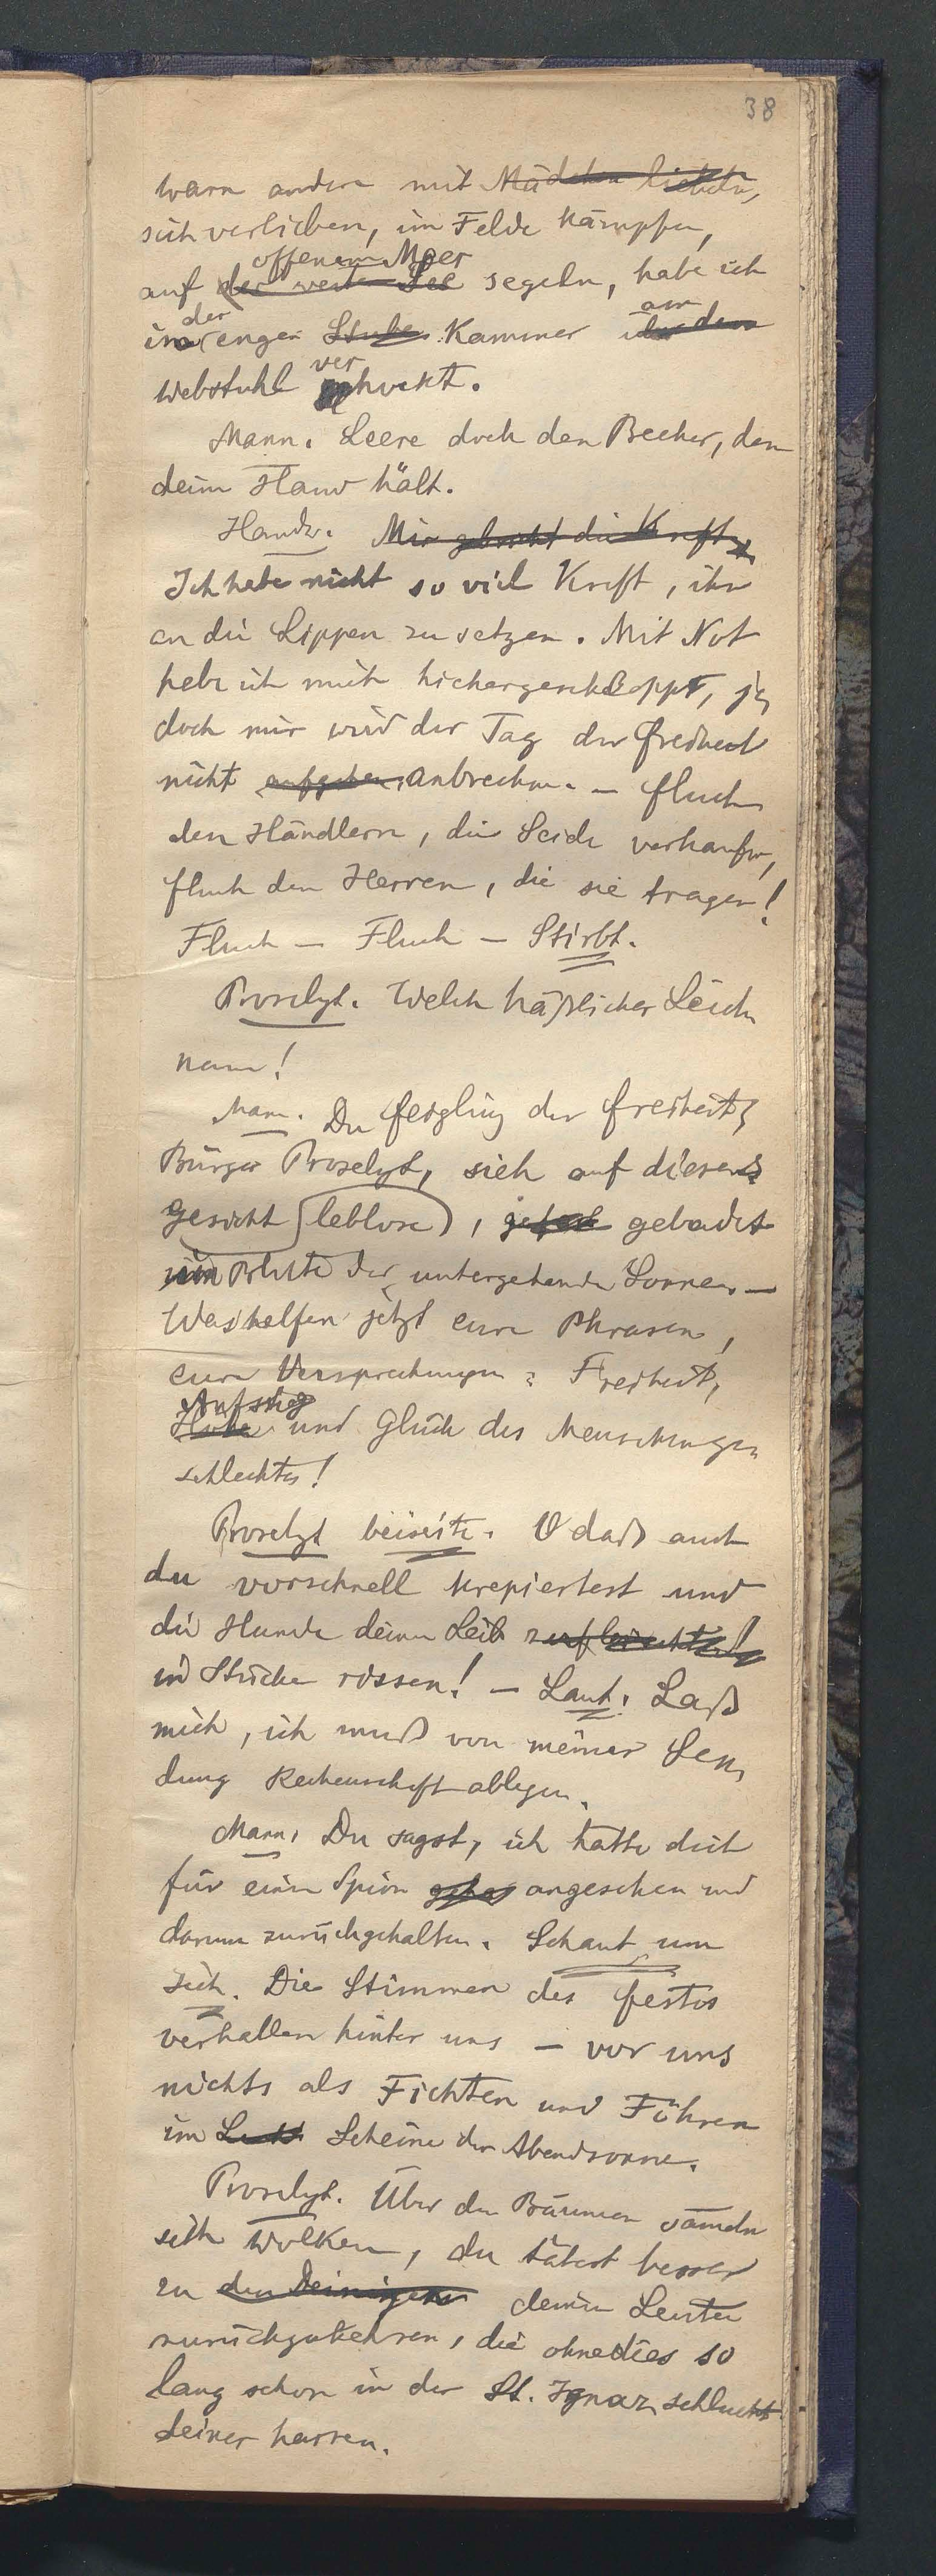 38
wenn andere mit Mädchen liebeln,
sich verlieben, im Felde kämpfen,
offenem Meer
auf der weiten See segeln, habe ich
der am
in enger Stube Kammer über dem
ver
Webstuhl gehockt.
Mann. Leere doch den Becher, den
deine Hand hält.
Handw. Mir gebricht die Kraft,
Ich habe nicht so viel Kraft, ihn
an die Lippen zu setzen. Mit Not
habe ich mich hierhergeschleppt, je
doch mir wird der Tag der Freiheit
nicht aufgehen anbrechen. – Fluch
den Händlern, die Seide verkaufen,
Fluch den Herren, die sie tragen!
Fluch – Fluch – Stirbt.
Proselyt. Welch häßlicher Leich
nam!
Mann. Du Feigling der Freiheit,
Bürger Proselyt, sieh auf dieses
Gesicht leblose, gebadet
im Blute der untergehenden Sonne –
Was helfen jetzt eure Phrasen,
eure Versprechungen: Freiheit,
Aufstieg
Höhe und Glück des Menschenge
schlechtes!
Proselyt beiseite. O daß auch
du vorschnell krepiertest und
die Hunde deinen Leib
in Stücke rissen! – Laut. Laß
mich, ich muß von meiner Sen
dung Rechenschaft ablegen.
Mann. Du sagst, ich hätte dich
für einen Spion angesehen und
darum zurückgehalten. Schaut um
sich. Die Stimmen des Festes
verhallen hinter uns – vor uns
nichts als Fichten und Föhren
im Licht Scheine der Abendsonne.
Proselyt. Über den Bäumen sameln
sich Wolken, du tätest besser
zu den Deinigen deinen Leuten
zurückzukehren, die ohnedies so
lang schon in der St. Ignazschlucht
deiner harren.